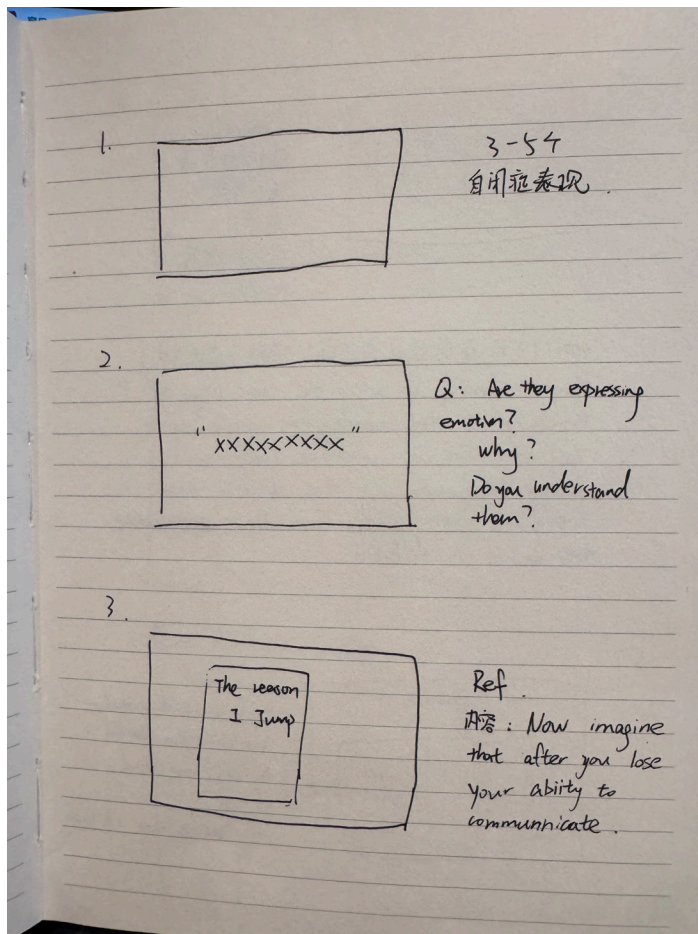 1.
3-5个
自闭症表现.
2.
"xxxxxxxxx"
Q: Are they expressing
emotion?
why?
Do you understand
them?
3.
The reason
I Jump
Ref.
内容: Now imagine
that after you lose
your abiity to
communnicate.